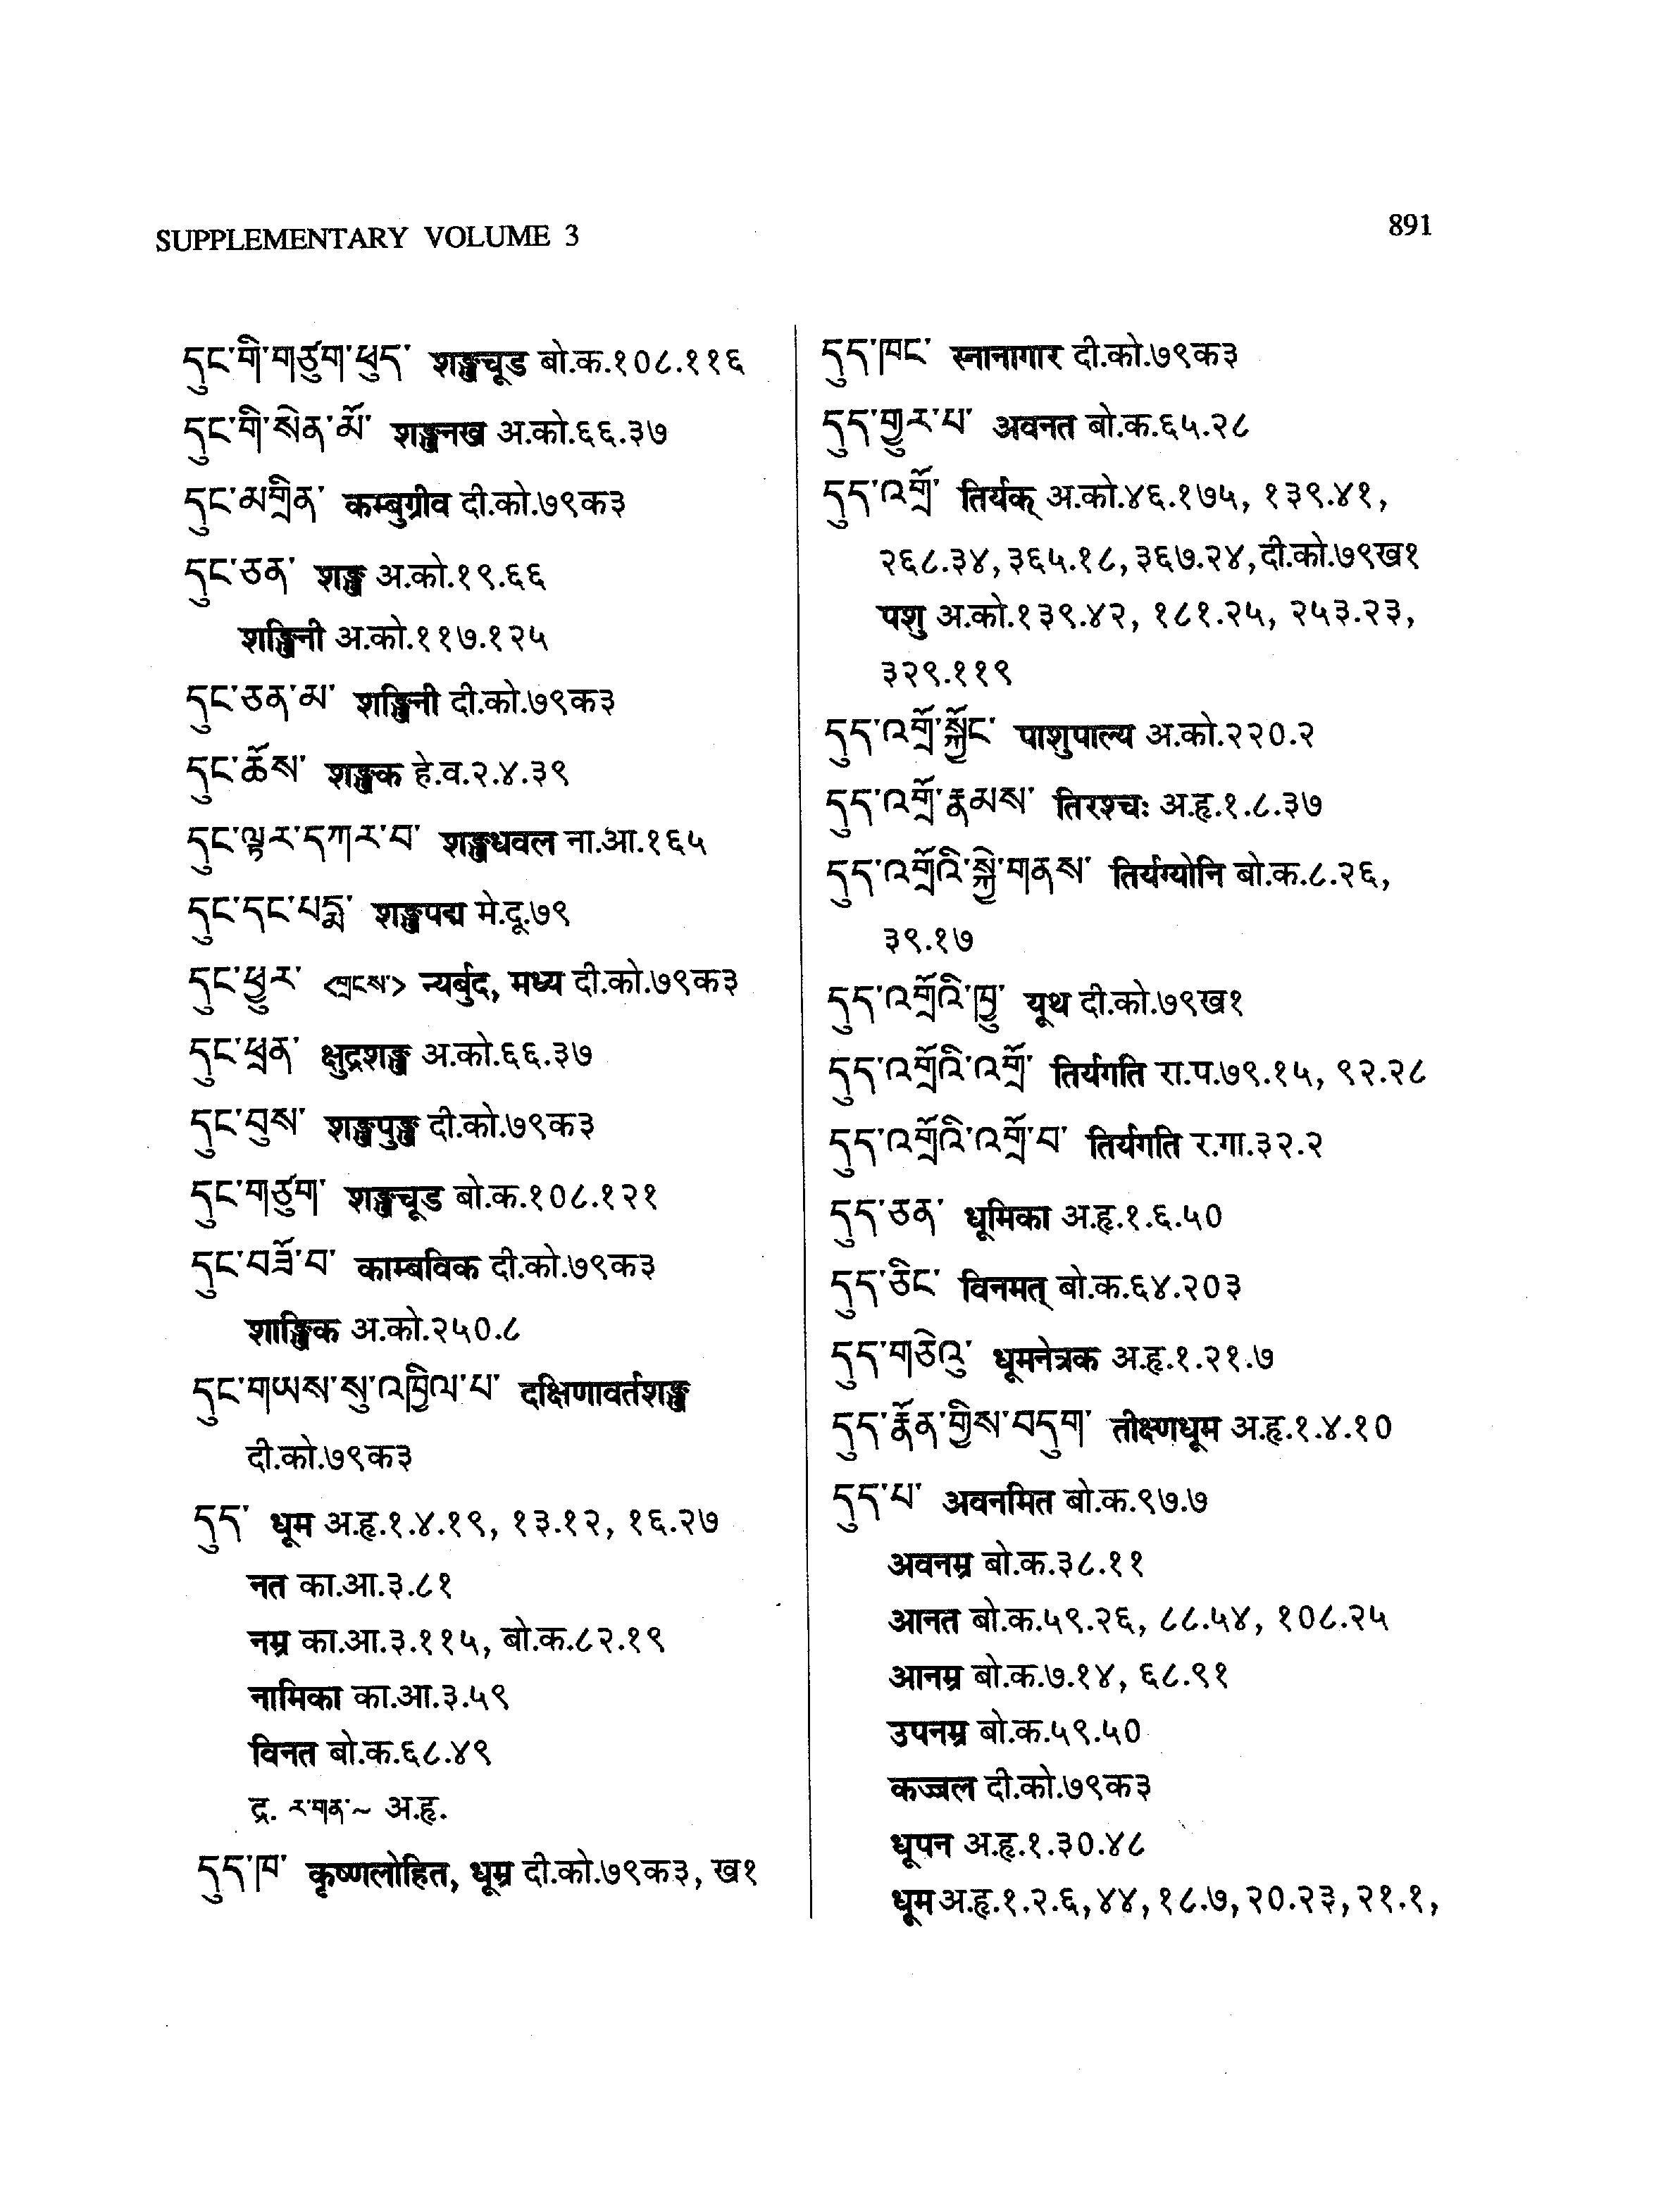 SUPPLEMENTARY VOLUME 3
891
དུང་གི་གཙུག་ཕུད་ शङ्खचूड बो.क.१०८.११६
དུང་གི་སེན་མོ་ शङ्खनख अ.को.६६.३७
དུང་མགྲིན་ कम्बुग्रीव दी.को.७९क३
དུང་ཅན་ शङ्ख अ.को.१९.६६
शङ्खिनी अ.को.११७.१२५
དུང་ཅན་མ་ शङ्खिनी दी.को.७९क३
དུང་ཆོས་ शङ्खक हे.व.२.४.३९
དུང་ལྟར་དཀར་བ་ शङ्खधवल ना.आ.१६५
དུང་དང་པདྨ་ शङ्खपद्म मे.दू.७९
དུང་ཕྱུར་ <གྲངས་> न्यर्बुद, मध्य दी.को.७९क३
དུང་ཕྲན་ क्षुद्रशङ्ख अ.को.६६.३७
དུང་བུས་ शङ्खपुङ्ख दी.को.७९क३
དུང་གཙུག་ शङ्खचूड बो.क.१०८.१२१
དུང་བཟོ་བ་ काम्बविक दी.को.७९क३
शाङ्खिक अ.को.२५०.८
དུང་གཡས་སུ་འཁྱིལ་པ་ दक्षिणावर्तशङ्ख
दी.को.७९क३
དུད་ धूम अ.हृ.१.४.१९, १३.१२, १६.२७
नत का.आ.३.८१
नम्र का.आ.३.११५, बो.क.८२.१९
नामिका का.आ.३.५९
विनत बो.क.६८.४९
द्र. ར་གན་~ अ.हृ.
དུད་ཁ་ कृष्णलोहित, धूम्र दी.को.७९क३, ख१
དུད་ཁང་ स्नानागार दी.को.७९क३
དུད་གྱུར་པ་ अवनत बो.क.६५.२८
དུད་འགྲོ་ तिर्यक् अ.को.४६.१७५, १३९.४१,
२६८.३४, ३६५.१८, ३६७.२४, दी.को.७९ख१
पशु अ.को.१३९.४२, १८१.२५, २५३.२३,
३२९.११९
དུད་འགྲོ་སྐྱོང་ पाशुपाल्य अ.को.२२०.२
དུད་འགྲོ་རྣམས་ तिरश्चः अ.हृ.१.८.३७
དུད་འགྲོའི་སྐྱེ་གནས་ तिर्यग्योनि बो.क.८.२६,
३९.१७
དུད་འགྲོའི་ཁྱུ་ यूथ दी.को.७९ख१
དུད་འགྲོའི་འགྲོ་ तिर्यगति रा.प.७९.१५, ९२.२८
དུད་འགྲོའི་འགྲོ་བ་ तिर्यगति र.गा.३२.२
དུད་ཅན་ धूमिका अ.हृ.१.६.५०
དུད་ཅིང་ विनमत् बो.क.६४.२०३
དུད་གཅེའུ་ धूमनेत्रक अ.हृ.१.२१.७
དུད་རྣོན་གྱིས་བདུག་ तीक्ष्णधूम अ.हृ.१.४.१०
དུད་པ་ अवनमित बो.क.९७.७
अवनम्र बो.क.३८.११
आनत बो.क.५९.२६, ८८.५४, १०८.२५
आनम्र बो.क.७.१४, ६८.९१
उपनम्र बो.क.५९.५०
कज्जल दी.को.७९क३
धूपन अ.हृ.१.३०.४८
धूम अ.हृ.१.२.६, ४४, १८.७, २०.२३, २१.१,